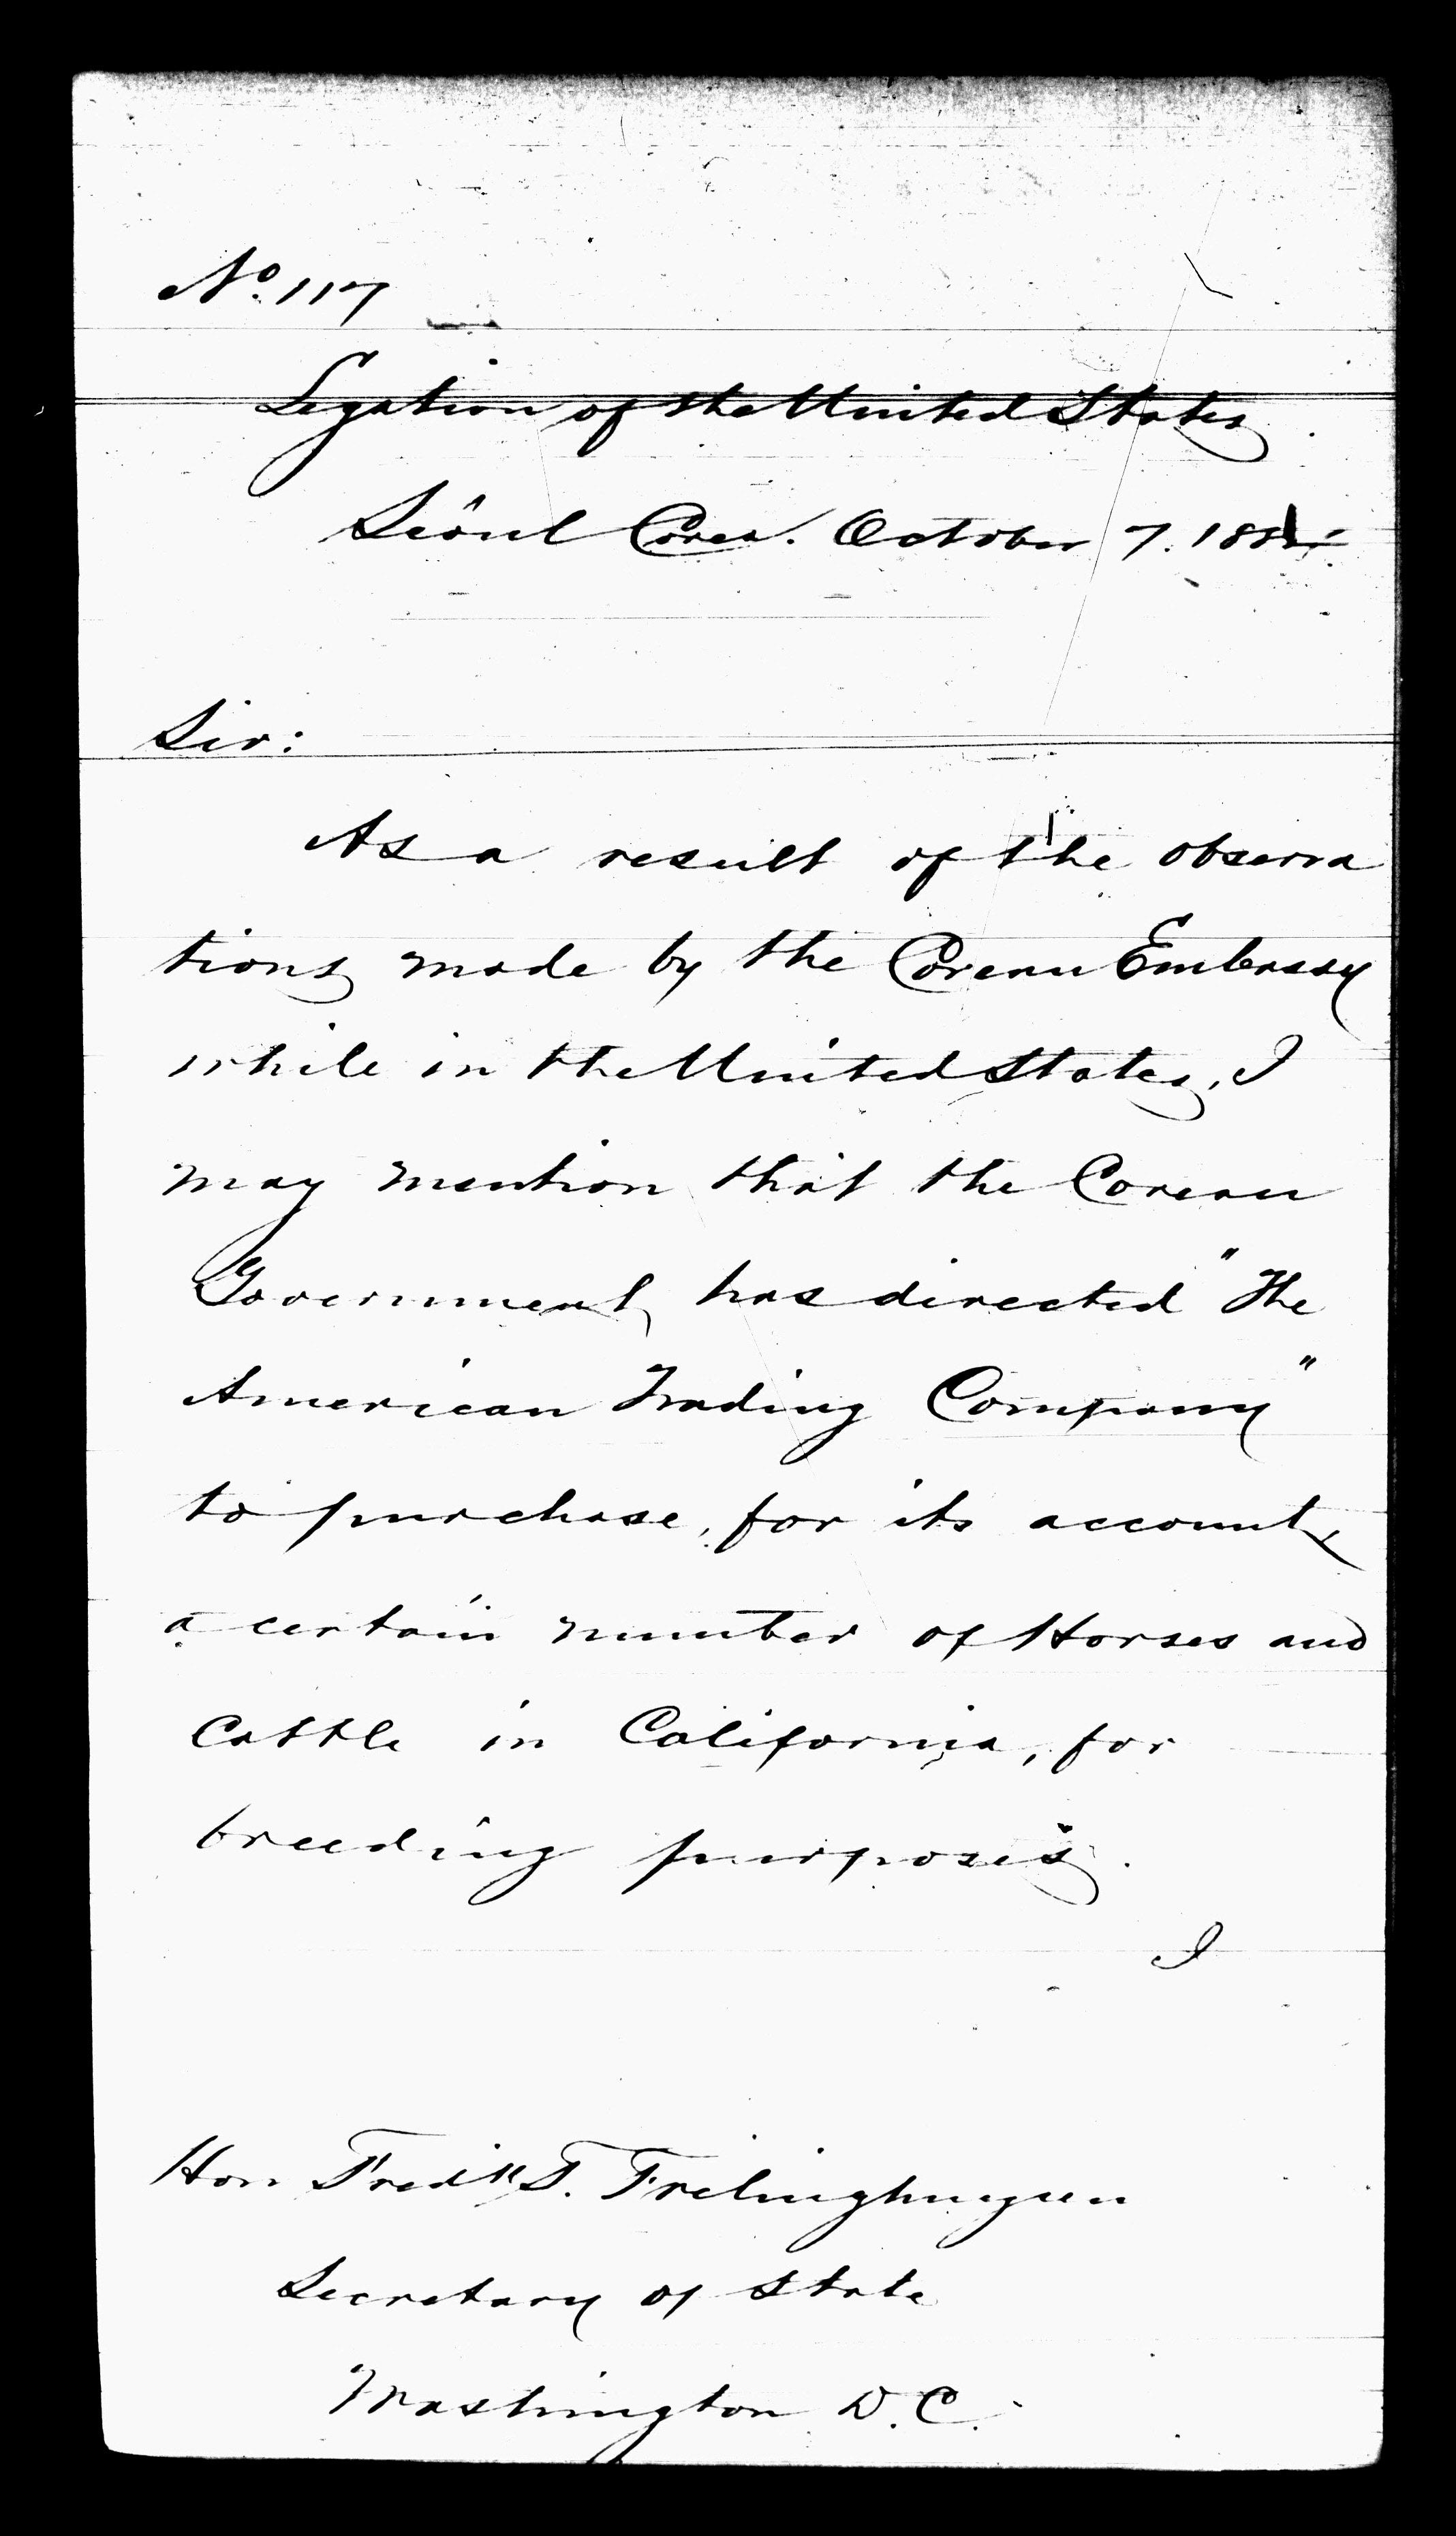 No. 117
Legation of the United States
Seôul Corea. October 7. 188
Sir:
As a result of the observa
tions made by the Corean Embassy
while in the United States, I
may mention that the Corean
Government, has directed "The
American Trading Company"
to purchase, for its account,
a certain number of Horses and
Cattle in California, for
breeding purposes.
I
Hon Fredk T. Frelinghuysen
Secretary of State
Washington D.C.